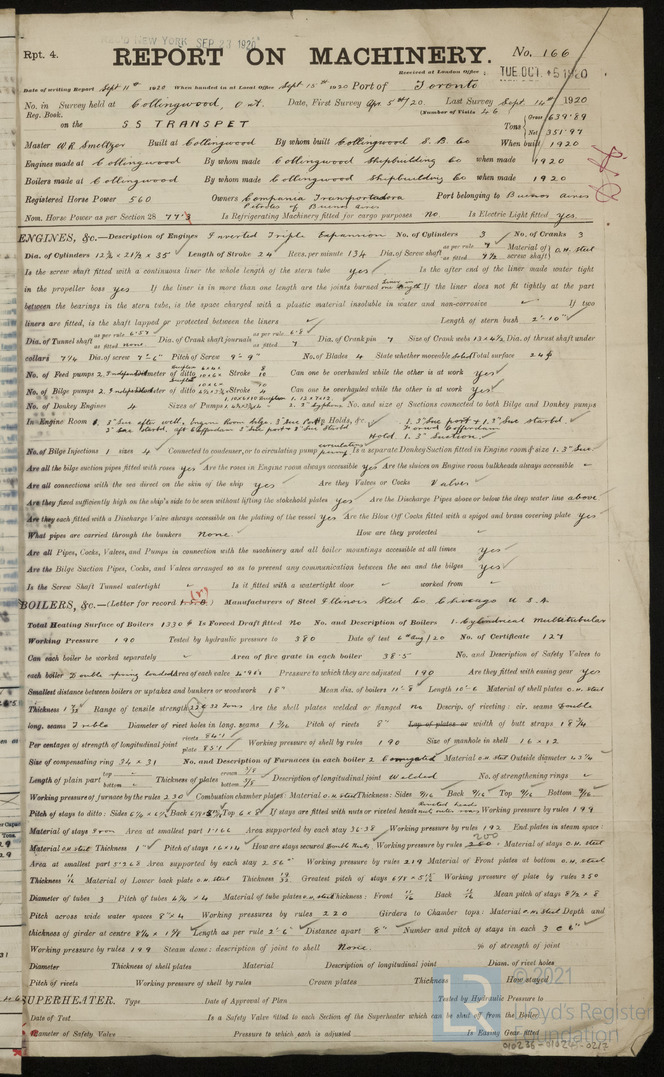 Rpt. 4.
NEW YORK SEP 23 1920
REPORT ON MACHINERY.
No. 166
Received at London Office TUE. OCT. 5 1920
Date of writing Report Sept 11th 1920 When handed in at Local Office Sept 15th 1920 Port of Toronto
No. in Survey held at Collingwood, Ont. Date, First Survey Apr. 5th/20 Last Survey Sept 14th 1920
Reg. Book. (Number of Visits 46
on the S S TRANSPET
Tons Gross 639.89
Net 351.97
Master W R Smeltzer Built at Collingwood By whom built Collingwood S. B. Co When built 1920
Engines made at Collingwood By whom made Collingwood Shipbuilding Co when made 1920
Boilers made at Collingwood By whom made Collingwood Shipbuilding Co when made 1920
Registered Horse Power 560 Owners Compania Transportadora Port belonging to Buenos Aires
Petroleo of Buenos Aires
Nom. Horse Power as per Section 28 77.3 Is Refrigerating Machinery fitted for cargo purposes No Is Electric Light fitted yes
ENGINES, &c.—Description of Engines Inverted Triple Expansion No. of Cylinders 3 No. of Cranks 3
Dia. of Cylinders 12¾ x 21½ x 35 Length of Stroke 24 Revs. per minute 134 Dia. of Screw shaft as per rule 7 as fitted 7½ Material of screw shaft O.H. Steel
Is the screw shaft fitted with a continuous liner the whole length of the stern tube yes Is the after end of the liner made water tight
in the propeller boss yes If the liner is in more than one length are the joints burned If the liner does not fit tightly at the part
between the bearings in the stern tube, is the space charged with a plastic material insoluble in water and non-corrosive If two
liners are fitted, is the shaft lapped or protected between the liners Length of stern bush 2'-10"
Dia. of Tunnel shaft as per rule 6.57 as fitted none Dia. of Crank shaft journals as per rule 6.8 as fitted 7 Dia. of Crank pin 7 Size of Crank webs 13 x 4½ Dia. of thrust shaft under
collars 7¼ Dia. of screw 7'-6" Pitch of Screw 9'-9" No. of Blades 4 State whether moveable solid Total surface 24
No. of Feed pumps 2 Diameter of ditto Stroke Can one be overhauled while the other is at work yes
No. of Bilge pumps 2 Diameter of ditto Stroke Can one be overhauled while the other is at work yes
No. of Donkey Engines 4 Sizes of Pumps No. and size of Suctions connected to both Bilge and Donkey pumps
In Engine Room In Holds, &c. 1. 3" Suc port & 1. 3" Suc starbd.
Forward Cofferdam
Hold. 1. 3" Suction.
No. of Bilge Injections 1 sizes 4 Connected to condenser, or to circulating pump circulating pump Is a separate Donkey Suction fitted in Engine room & size 1. 3" Suc
Are all the bilge suction pipes fitted with roses yes Are the roses in Engine room always accessible yes Are the sluices on Engine room bulkheads always accessible
Are all connections with the sea direct on the skin of the ship yes Are they Valves or Cocks Valves
Are they fixed sufficiently high on the ship's side to be seen without lifting the stokehold plates yes Are the Discharge Pipes above or below the deep water line above
Are they each fitted with a Discharge Valve always accessible on the plating of the vessel yes Are the Blow Off Cocks fitted with a spigot and brass covering plate yes
What pipes are carried through the bunkers none How are they protected
Are all Pipes, Cocks, Valves, and Pumps in connection with the machinery and all boiler mountings accessible at all times yes
Are the Bilge Suction Pipes, Cocks, and Valves arranged so as to prevent any communication between the sea and the bilges yes
Is the Screw Shaft Tunnel watertight Is it fitted with a watertight door worked from
BOILERS, &c.—(Letter for record (r)) Manufacturers of Steel Illinois Steel Co. Chicago U.S.A.
Total Heating Surface of Boilers 1330 Is Forced Draft fitted no No. and Description of Boilers 1. Cylindrical Multitubular
Working Pressure 190 Tested by hydraulic pressure to 380 Date of test 6th Aug/20 No. of Certificate 127
Can each boiler be worked separately Area of fire grate in each boiler 38.5 No. and Description of Safety Valves to
each boiler Double spring loaded Area of each valve 4.91 Pressure to which they are adjusted 190 Are they fitted with easing gear yes
Smallest distance between boilers or uptakes and bunkers or woodwork 18" Mean dia. of boilers 11'-8" Length 10'-6 Material of shell plates O.H. Steel
Thickness Range of tensile strength Are the shell plates welded or flanged no Descrip. of riveting: cir. seams double
long. seams Treble Diameter of rivet holes in long. seams 1 3/16 Pitch of rivets 8" Lap of plates or width of butt straps 18¾
Per centages of strength of longitudinal joint rivets 84.1 plate 85.1 Working pressure of shell by rules 190 Size of manhole in shell 16 x 12
Size of compensating ring 34 x 31 No. and Description of Furnaces in each boiler 2 Corrugated Material O.H. Steel Outside diameter 43¼
Length of plain part top bottom Thickness of plates crown bottom Description of longitudinal joint Welded No. of strengthening rings
Working pressure of furnace by the rules 230 Combustion chamber plates: Material O.H. Steel Thickness: Sides 9/16 Back 9/16 Top 9/16 Bottom
Pitch of stays to ditto: Sides 6¼ x 6½ Back Top 6 x 8 If stays are fitted with nuts or riveted heads Working pressure by rules 199
Material of stays Area at smallest part 1.166 Area supported by each stay 36.38 Working pressure by rules 192 End plates in steam space:
Material O.H. Steel Thickness 1" Pitch of stays 16 x 14 How are stays secured Double Nuts Working pressure by rules 200 Material of stays O.H. Steel
Area at smallest part 5.268 Area supported by each stay 256 Working pressure by rules 219 Material of Front plates at bottom O.H. Steel
Thickness Material of Lower back plate O.H. Steel Thickness Greatest pitch of stays Working pressure of plate by rules 250
Diameter of tubes 3 Pitch of tubes 4¼ x 4 Material of tube plates O.H. Steel Thickness: Front Back Mean pitch of stays 8½ x 8
Pitch across wide water spaces 8" x 4 Working pressures by rules 220 Girders to Chamber tops: Material O.H. Steel Depth and
thickness of girder at centre 8¼ x 1⅛ Length as per rule 2'-6" Distance apart 8" Number and pitch of stays in each 3 @ 6"
Working pressure by rules 199 Steam dome: description of joint to shell None. % of strength of joint
Diameter Thickness of shell plates Material Description of longitudinal joint Diam. of rivet holes
Pitch of rivets Working pressure of shell by rules Crown plates Thickness How stayed
SUPERHEATER. Type Date of Approval of Plan Tested by Hydraulic Pressure to
Date of Test Is a Safety Valve fitted to each Section of the Superheater which can be shut off from the Boiler
Diameter of Safety Valve Pressure to which each is adjusted Is Easing Gear fitted
© 2021
Lloyd's Register
Foundation
010236-010241-0217